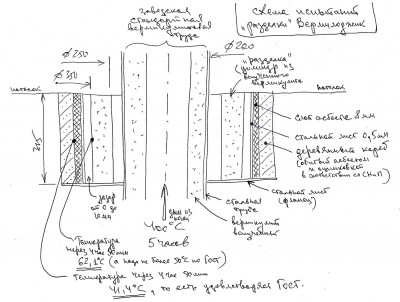 Схема испытаний
"разделки" Вермилоджик
заводская
стандартная
вермикулитовая
труба
ø 200
ø 250
ø 350
"разделка"
(цилиндр из
вспученного
вермикулита)
потолок
потолок
315
слой асбеста 8 мм
стальной лист 0,5 мм
деревянный короб
(обитый асбестом
и оцинковкой
в соответствии со СНиП)
стальной лист
(фланец)
стальная
труба
вермикулит
вспученный
зазор
от 0 до
10 мм
дым из
печи
400°С
5 часов
Температура
через 4 час 50 мин
62,1°С (а надо не более 50°С по Гост)
Температура через 4 час 50 мин
41,4°С, то есть удовлетворяет Гост.